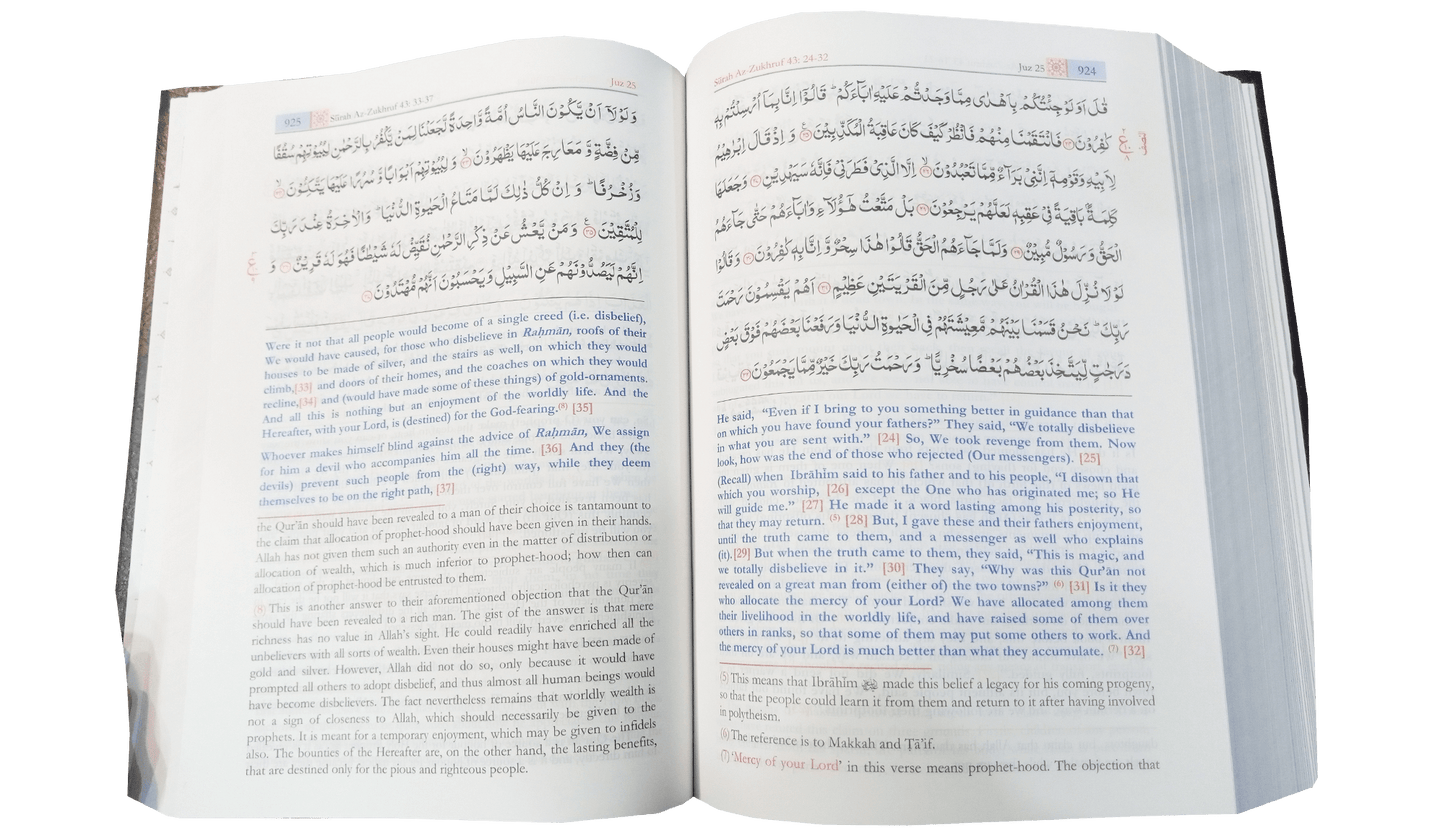 Sūrah Az-Zukhruf 43: 24-32 Juz 25 924
قُلْ اَوَلَوْ جِئْتُكُمْ بِاَهْدٰى مِمَّا وَجَدْتُّمْ عَلَيْهِ اٰبَآءَكُمْ ؕ قَالُوْۤا اِنَّا بِمَاۤ اُرْسِلْتُمْ بِهٖ
كٰفِرُوْنَ ﴿۲۴﴾ فَانْتَقَمْنَا مِنْهُمْ فَانْظُرْ كَيْفَ كَانَ عَاقِبَةُ الْمُكَذِّبِيْنَ ﴿۲۵﴾ وَ اِذْ قَالَ اِبْرٰهِيْمُ
لِاَبِيْهِ وَقَوْمِهٖۤ اِنَّنِيْ بَرَآءٌ مِّمَّا تَعْبُدُوْنَ ﴿۲۶﴾ اِلَّا الَّذِيْ فَطَرَنِيْ فَاِنَّهٗ سَيَهْدِيْنِ ﴿۲۷﴾ وَجَعَلَهَا
كَلِمَةًۢ بَاقِيَةً فِيْ عَقِبِهٖ لَعَلَّهُمْ يَرْجِعُوْنَ ﴿۲۸﴾ بَلْ مَتَّعْتُ هٰۤؤُلَآءِ وَاٰبَآءَهُمْ حَتّٰى جَآءَهُمُ
الْحَقُّ وَرَسُوْلٌ مُّبِيْنٌ ﴿۲۹﴾ وَلَمَّا جَآءَهُمُ الْحَقُّ قَالُوْا هٰذَا سِحْرٌ وَّ اِنَّا بِهٖ كٰفِرُوْنَ ﴿۳۰﴾ وَقَالُوْا
لَوْلَا نُزِّلَ هٰذَا الْقُرْاٰنُ عَلٰى رَجُلٍ مِّنَ الْقَرْيَتَيْنِ عَظِيْمٍ ﴿۳۱﴾ اَهُمْ يَقْسِمُوْنَ رَحْمَتَ
رَبِّكَ ؕ نَحْنُ قَسَمْنَا بَيْنَهُمْ مَّعِيْشَتَهُمْ فِي الْحَيٰوةِ الدُّنْيَا وَرَفَعْنَا بَعْضَهُمْ فَوْقَ بَعْضٍ
دَرَجٰتٍ لِّيَتَّخِذَ بَعْضُهُمْ بَعْضًا سُخْرِيًّا ؕ وَرَحْمَتُ رَبِّكَ خَيْرٌ مِّمَّا يَجْمَعُوْنَ ﴿۳۲﴾
He said, “Even if I bring to you something better in guidance than that
on which you have found your fathers?” They said, “We totally disbelieve
in what you are sent with.” [24] So, We took revenge from them. Now
look, how was the end of those who rejected (Our messengers). [25]
(Recall) when Ibrāhīm said to his father and to his people, “I disown that
which you worship, [26] except the One who has originated me; so He
will guide me.” [27] He made it a word lasting among his posterity, so
that they may return. (5) [28] But, I gave these and their fathers enjoyment,
until the truth came to them, and a messenger as well who explains
(it).[29] But when the truth came to them, they said, “This is magic, and
we totally disbelieve in it.” [30] They say, “Why was this Qur’ān not
revealed on a great man from (either of) the two towns?” (6) [31] Is it they
who allocate the mercy of your Lord? We have allocated among them
their livelihood in the worldly life, and have raised some of them over
others in ranks, so that some of them may put some others to work. And
the mercy of your Lord is much better than what they accumulate. (7) [32]
(5) This means that Ibrāhīm made this belief a legacy for his coming progeny,
so that the people could learn it from them and return to it after having involved
in polytheism.
(6) The reference is to Makkah and Ṭā’if.
(7) ‘Mercy of your Lord’ in this verse means prophet-hood. The objection that
925 Sūrah Az-Zukhruf 43: 33-37 Juz 25
وَلَوْلَاۤ اَنْ يَّكُوْنَ النَّاسُ اُمَّةً وَّاحِدَةً لَّجَعَلْنَا لِمَنْ يَّكْفُرُ بِالرَّحْمٰنِ لِبُيُوْتِهِمْ سُقُفًا
مِّنْ فِضَّةٍ وَّ مَعَارِجَ عَلَيْهَا يَظْهَرُوْنَ ﴿۳۳﴾ وَلِبُيُوْتِهِمْ اَبْوَابًا وَّ سُرُرًا عَلَيْهَا يَتَّكِـُٔوْنَ ﴿۳۴﴾
وَزُخْرُفًا ؕ وَ اِنْ كُلُّ ذٰلِكَ لَمَّا مَتَاعُ الْحَيٰوةِ الدُّنْيَا ؕ وَالْاٰخِرَةُ عِنْدَ رَبِّكَ
لِلْمُتَّقِيْنَ ﴿۳۵﴾ وَمَنْ يَّعْشُ عَنْ ذِكْرِ الرَّحْمٰنِ نُقَيِّضْ لَهٗ شَيْطٰنًا فَهُوَ لَهٗ قَرِيْنٌ ﴿۳۶﴾ وَ
اِنَّهُمْ لَيَصُدُّوْنَهُمْ عَنِ السَّبِيْلِ وَيَحْسَبُوْنَ اَنَّهُمْ مُّهْتَدُوْنَ ﴿۳۷﴾
Were it not that all people would become of a single creed (i.e. disbelief),
We would have caused, for those who disbelieve in Raḥmān, roofs of their
houses to be made of silver, and the stairs as well, on which they would
climb,[33] and doors of their homes, and the coaches on which they would
recline,[34] and (would have made some of these things) of gold-ornaments.
And all this is nothing but an enjoyment of the worldly life. And the
Hereafter, with your Lord, is (destined) for the God-fearing.(8) [35]
Whoever makes himself blind against the advice of Raḥmān, We assign
for him a devil who accompanies him all the time. [36] And they (the
devils) prevent such people from the (right) way, while they deem
themselves to be on the right path, [37]
the Qur’ān should have been revealed to a man of their choice is tantamount to
the claim that allocation of prophet-hood should have been given in their hands.
Allah has not given them such an authority even in the matter of distribution or
allocation of wealth, which is much inferior to prophet-hood; how then can
allocation of prophet-hood be entrusted to them.
(8) This is another answer to their aforementioned objection that the Qur’ān
should have been revealed to a rich man. The gist of the answer is that mere
richness has no value in Allah’s sight. He could readily have enriched all the
unbelievers with all sorts of wealth. Even their houses might have been made of
gold and silver. However, Allah did not do so, only because it would have
prompted all others to adopt disbelief, and thus almost all human beings would
have become disbelievers. The fact nevertheless remains that worldly wealth is
not a sign of closeness to Allah, which should necessarily be given to the
prophets. It is meant for a temporary enjoyment, which may be given to infidels
also. The bounties of the Hereafter are, on the other hand, the lasting benefits,
that are destined only for the pious and righteous people.